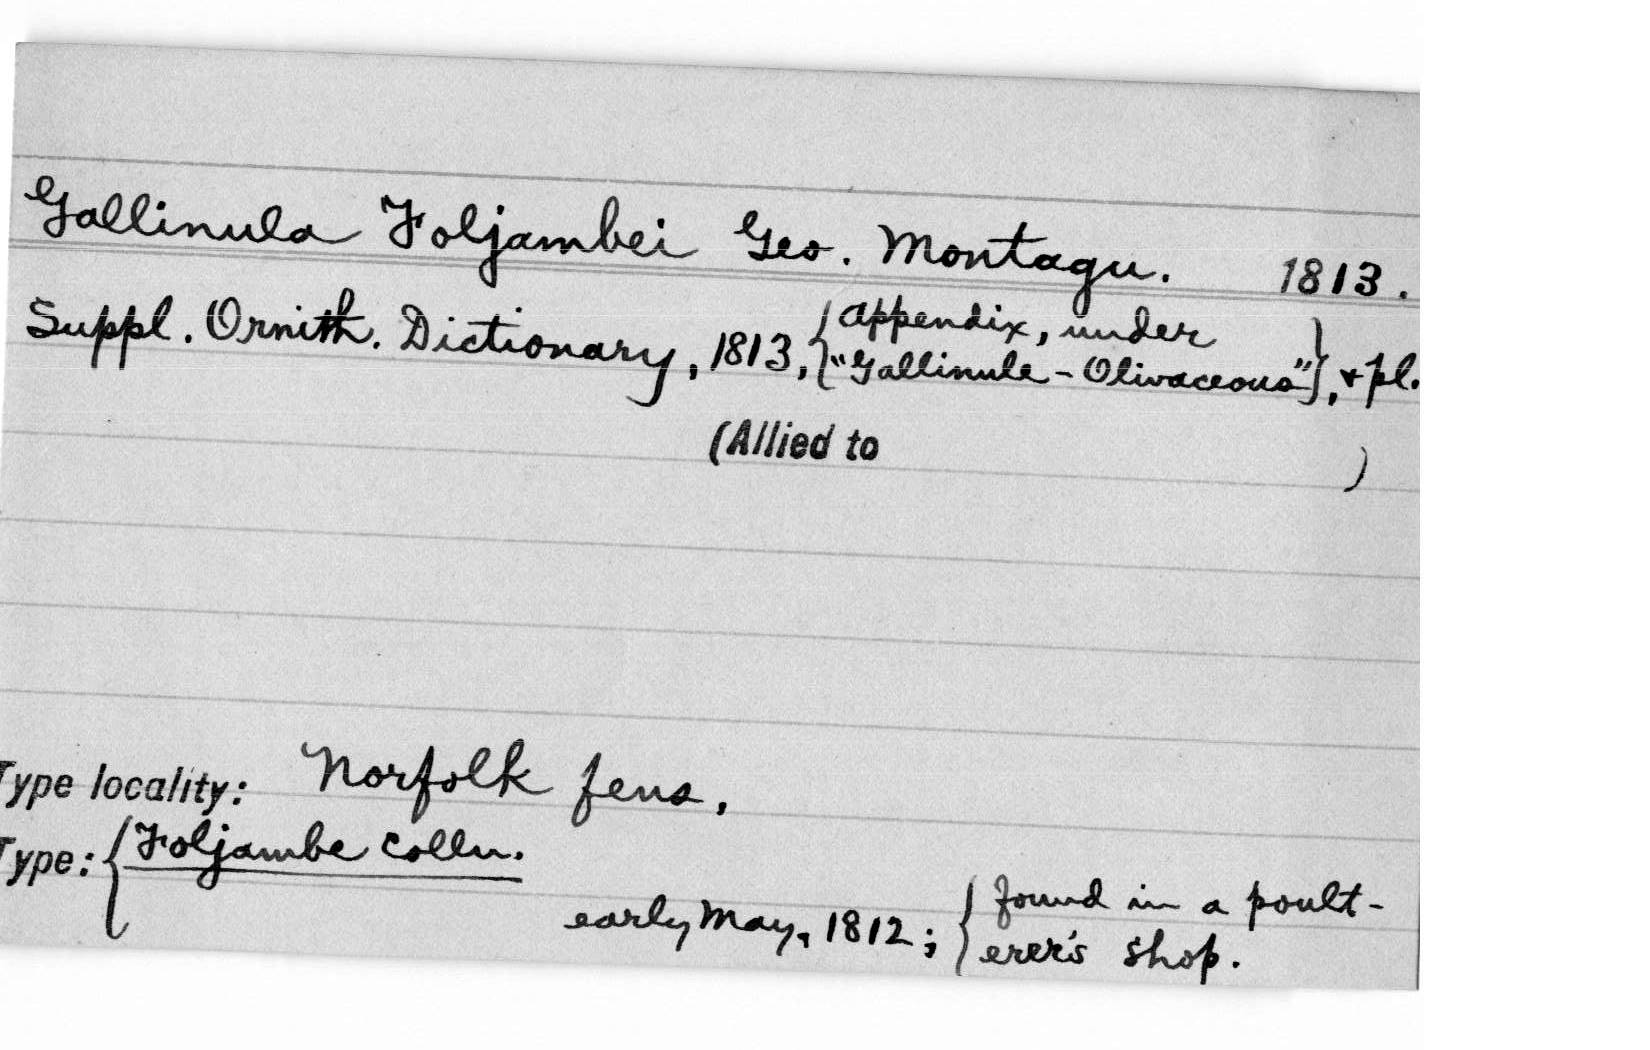 Gallinula Foljambei Geo. Montagu. 1813.
Suppl. Ornith. Dictionary, 1813, {Appendix, under
"Gallinule-Olivaceous"}, & pl.
(Allied to )
Type locality: Norfolk fens,
Type: {Foljambe colln.
early May, 1812; {found in a poult-
erer's shop.